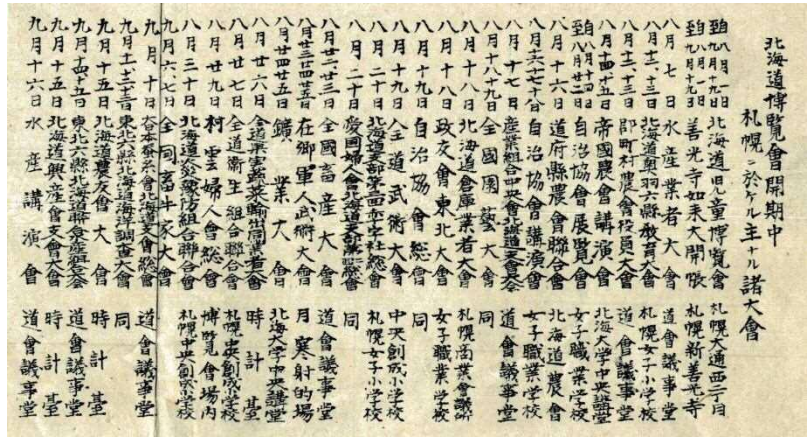 北海道博覧會開期中
札幌ニ於ケル主ナル諸大會
自八月一日至九月十九日 北海道児童博覧會 札幌大通西二丁目
自八月一日至九月十九日 善光寺如来大開帳 札幌新善光寺
八月七日 水産業者大會 道會議事堂
八月十二、十三日 北海道奥羽六縣教育大會 札幌女子小学校
八月十二、十三日 郡町村農會役員大會 道會議事堂
八月十四、十五日 帝國農會講演會 北海大学中央講堂
自八月十四日至八月廿二日 自治協會展覧會 女子職業学校
八月十六日 道府縣農會聯合會 北海道農會
八月十六、十七、十八日 自治協會講演會 女子職業学校
八月十七日 産業組合中央會北海道支會大會 道會議事堂
八月十八、十九日 全國園藝大會 同
八月十八日 北海道倉庫業者大會 札幌商業會議所
八月十八日 政友會東北大會 女子職業学校
八月十九日 自治協會總會 同
八月十九日 全道武術大會 中央創成小学校
八月二十日 北海道支部第四赤十字社総會 札幌女子小学校
八月二十日 愛國婦人會北海道支部總會 同
八月廿二、廿三日 全國畜産大會 道會議事堂
八月廿三、廿四、廿五日 在郷軍人武術大會 月寒射的場
八月廿四、廿五日 鑛業大會 北海大学中央講堂
八月廿六日 全道果実蔬菜輸出同業者大會 時計臺
八月廿七日 全道衛生組合聯合會 札幌中央創成小学校
八月廿九日 村雲婦人會總會 博覧會場内
八月三十日 北海道火災豫防組合聯合會 札幌中央創成小学校
九月六、七日 全同畜牛家大會
九月十日 大日本蚕糸會北海道支會總會 道會議事堂
九月十一、十二、十三日 東北六縣北海道海洋調査大會 同
九月十五日 北海道農友會大會 時計臺
九月十四、十五日 東北六縣北海道聯合産組大會 道會議事堂
九月十五日 北海道興産會支會大會 時計臺
九月十六日 水産講演會 道會議事堂